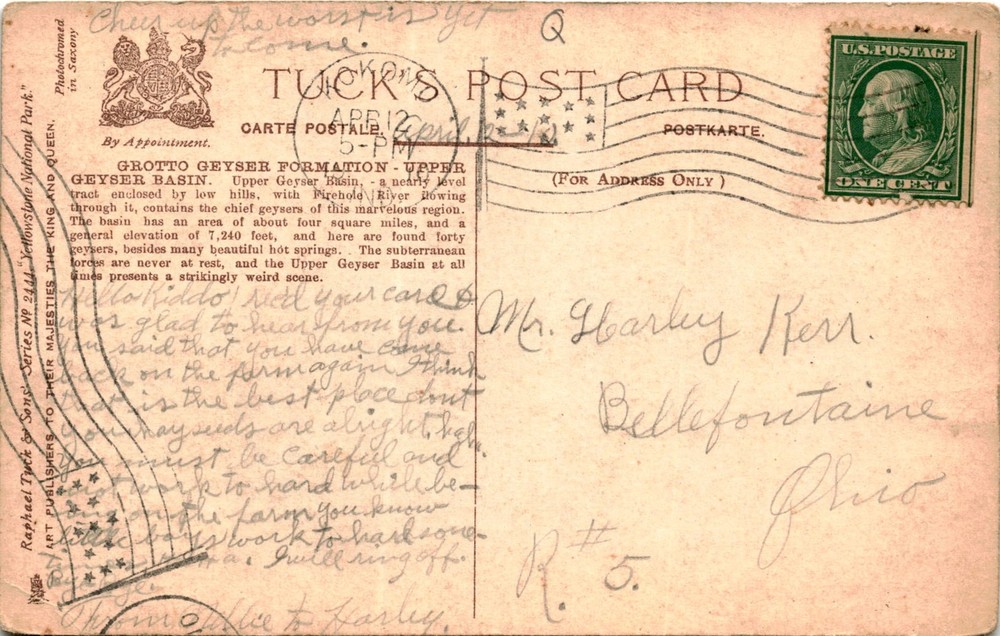 Cheer up the worst is yet
to come.
Q
Photochromed
in Saxony
By Appointment.
TUCK'S POST CARD
CARTE POSTALE.
POSTKARTE.
(FOR ADDRESS ONLY )
KOKOMO
APR 12
5-PM
April
U.S. POSTAGE
ONE CENT
Raphael Tuck & Sons' Series Nº 2444 "Yellowstone National Park."
ART PUBLISHERS TO THEIR MAJESTIES THE KING AND QUEEN.
GROTTO GEYSER FORMATION - UPPER
GEYSER BASIN. Upper Geyser Basin, - a nearly level
tract enclosed by low hills, with Firehole River flowing
through it, contains the chief geysers of this marvelous region.
The basin has an area of about four square miles, and a
general elevation of 7,240 feet, and here are found forty
geysers, besides many beautiful hot springs. The subterranean
forces are never at rest, and the Upper Geyser Basin at all
times presents a strikingly weird scene.
Hello Kiddo! recd your card &
was glad to hear from you.
You said that you have come
back on the farm again I think
that is the best place dont
you hayseeds are alright. haha.
You must be careful and
not work to hard while be-
ing on the farm you know
little boys work to hard some-
I will ring off
Bye bye.
From to Harley.
Mr. Harley Kerr.
Bellefontaine
Ohio
R. # 5.